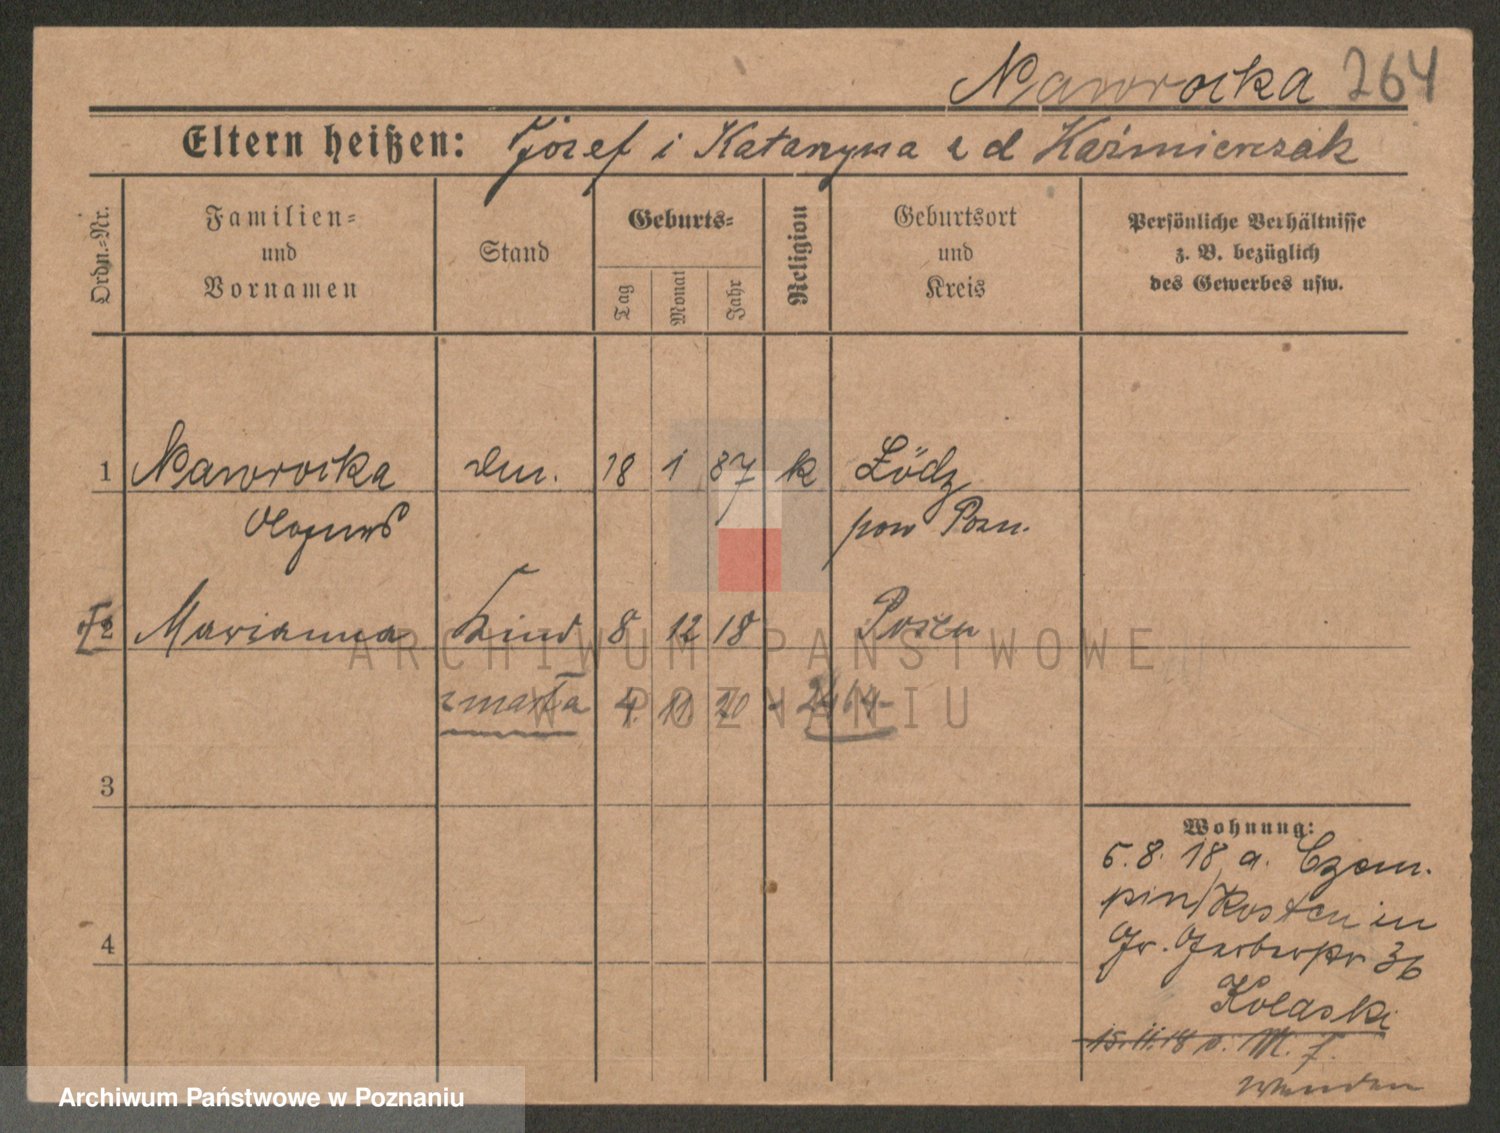 Nawrocka 264
Eltern heißen: Józef i Katarzyna z d Kaźmierczak
Ordn.-Nr.
Familien-
und
Vornamen
Stand
Geburts-
Tag
Monat
Jahr
Religion
Geburtsort
und
Kreis
Persönliche Verhältnisse
z. B. bezüglich
des Gewerbes usw.
1 Nawrocka 18 1 87 k Łódz
pow Pozn.
2 Marianna Kind 8 12 18 Posen
zmarła 4. 11. 20
3
4
Wohnung:
5.8.18 a. Czem-
pin/Kosten in
Gr. Gerberstr 36
Kolaski
15.11.18 v. M. F.
wenden
ARCHIWUM PAŃSTWOWE
W POZNANIU
Archiwum Państwowe w Poznaniu